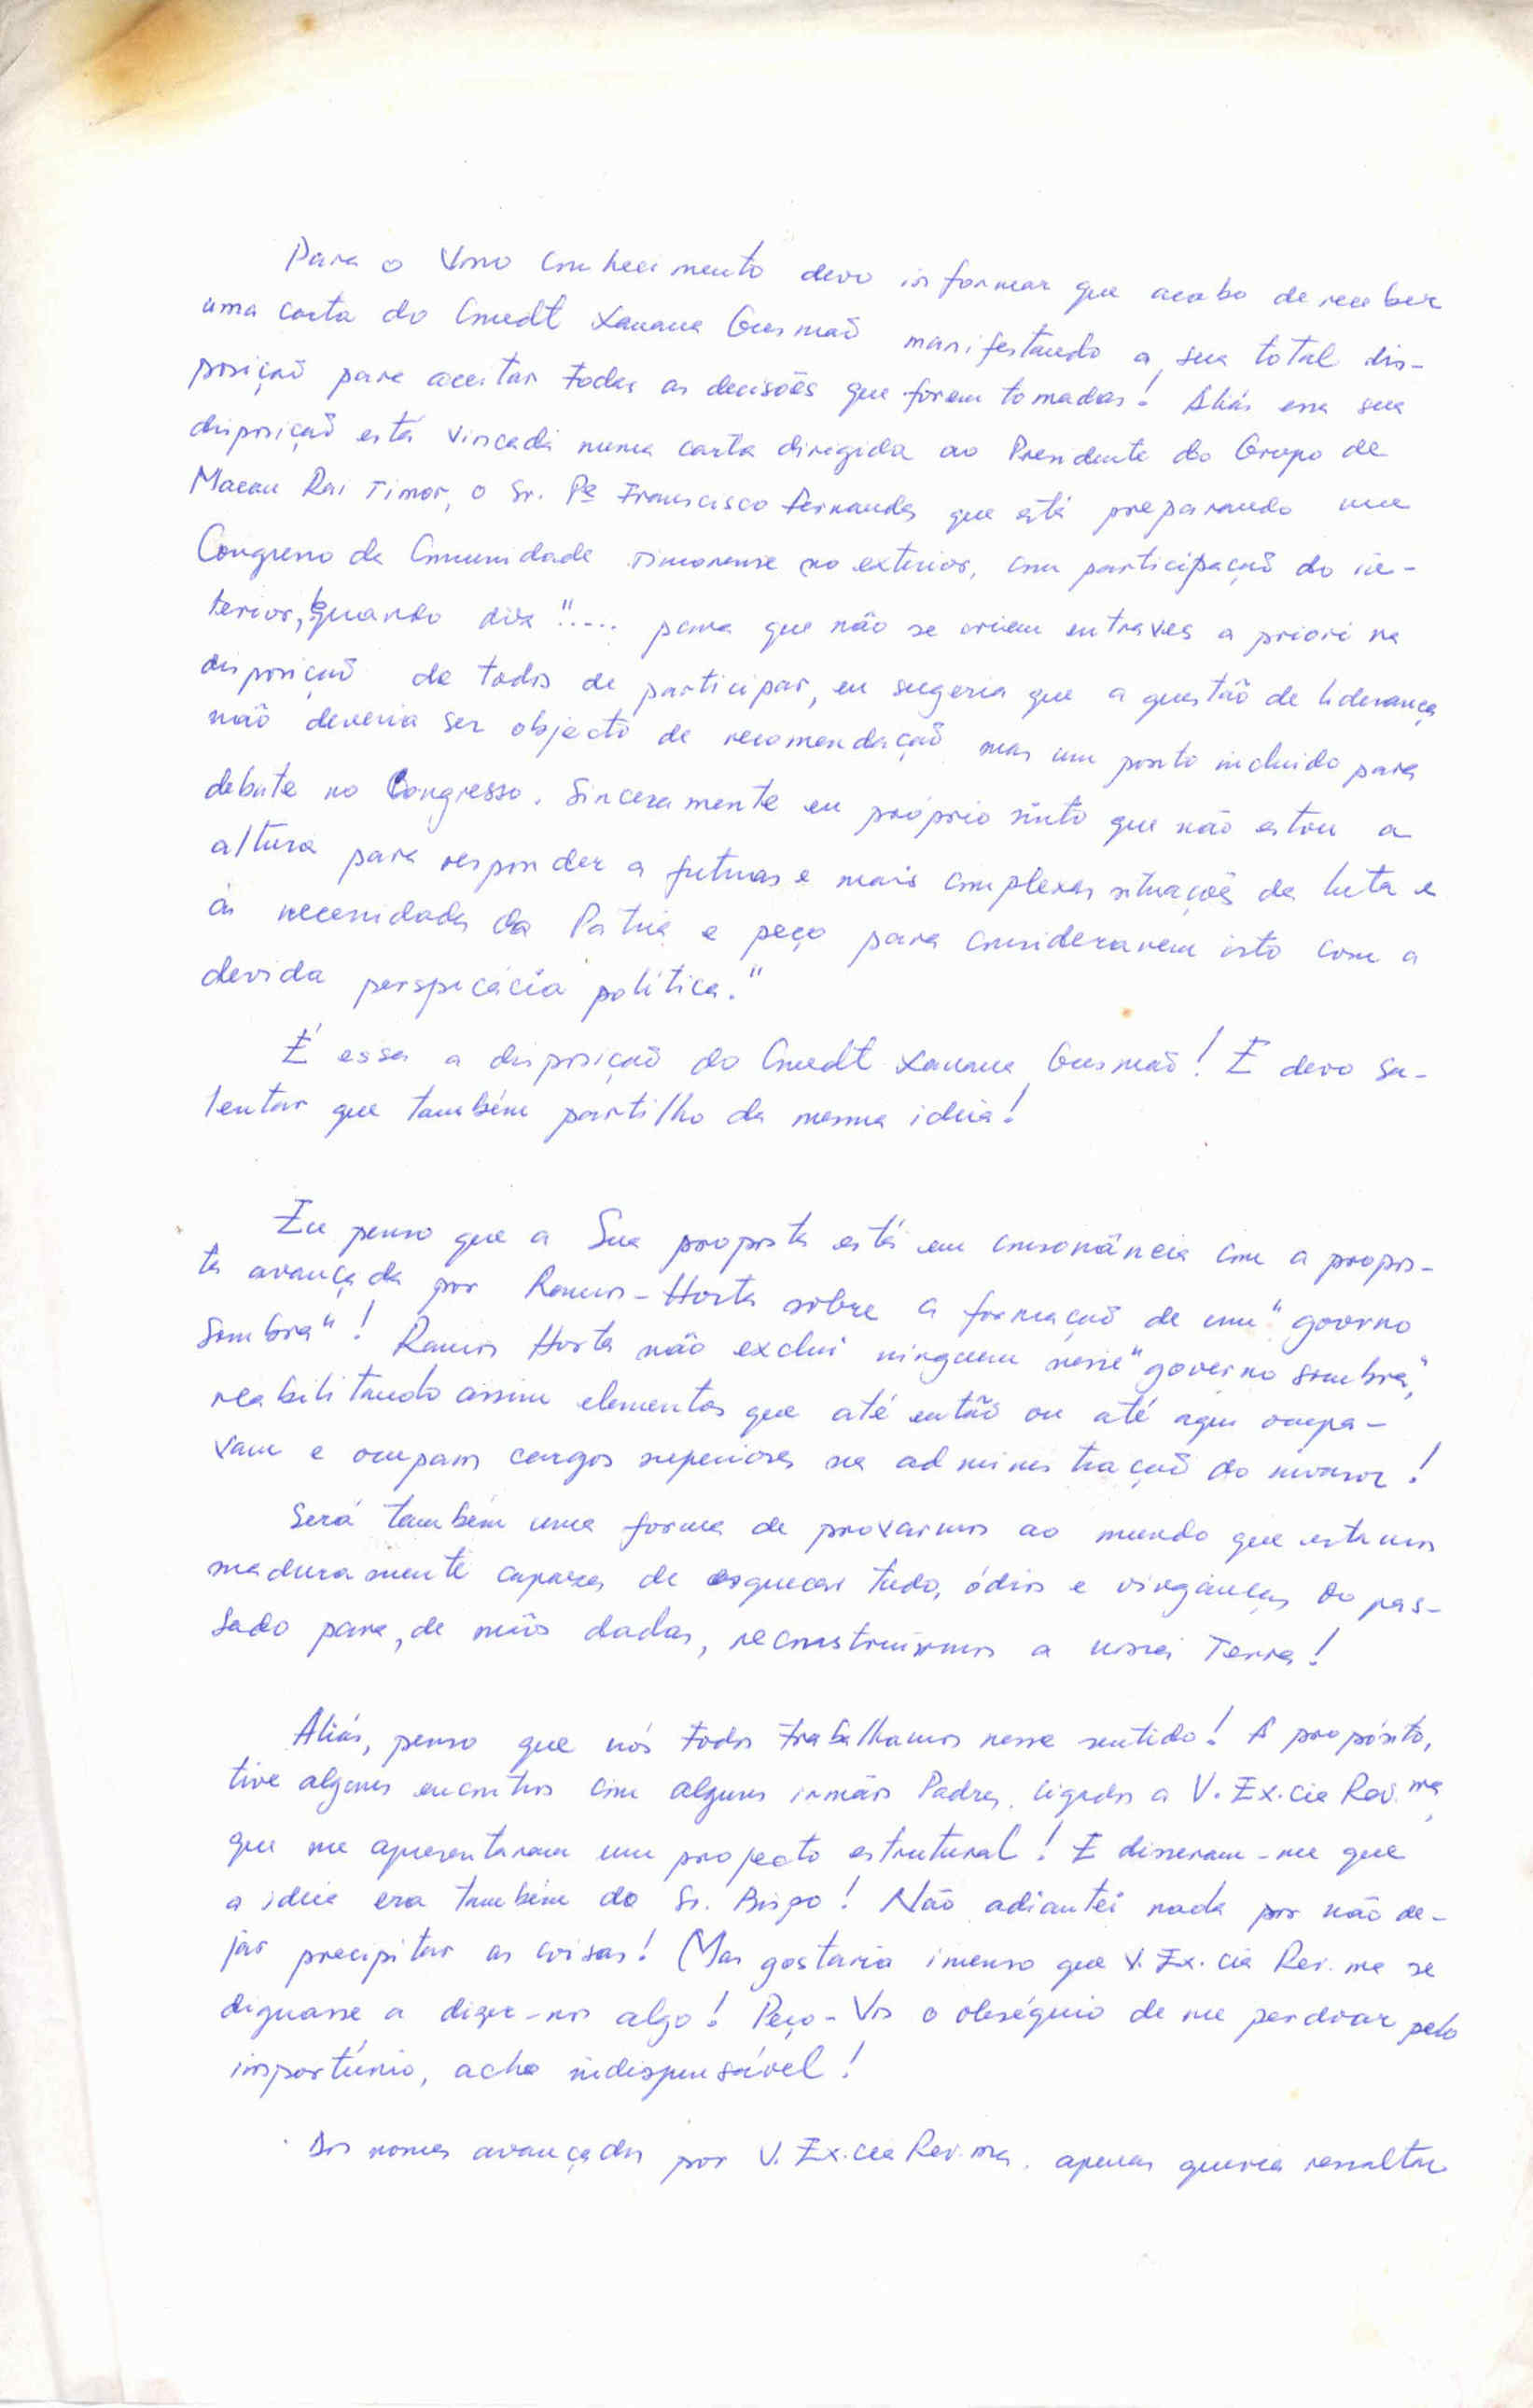 Para o Vosso conhecimento devo informar que acabo de receber
uma carta do Cmdt Xanana Gusmão manifestando a sua total dis-
posição para aceitar todas as decisões que forem tomadas! Aliás essa sua
disposição está vincada numa carta dirigida ao Presidente do Grupo de
Macau Rai Timor, o Sr. Pe Francisco Fernandes que está preparando um
Congresso da Comunidade Timorense no exterior, com participação do in-
terior, quando diz "..... para que não se criem entraves a priori na
disposição de todos de participar, eu sugeria que a questão de liderança
não deveria ser objecto de recomendação mas um ponto incluido para
debate no Congresso. Sinceramente eu próprio sinto que não estou a
altura para responder a futuras e mais complexas situações da luta e
às necessidades da Pátria e peço para considerarem isto com a
devida perspicácia política."
É essa a disposição do Cmdt Xanana Gusmão! E devo sa-
lentar que também partilho da mesma ideia!
Eu penso que a Sua proposta está em consonância com a propos-
ta avançada por Ramos-Horta sobre a formação de um "governo
sombra"! Ramos Horta não exclui ninguem nesse "governo sombra",
reabilitando assim elementos que até então ou até aqui ocupa-
vam e ocupam cargos superiores na administração do invasor!
Será também uma forma de provarmos ao mundo que estamos
maduramente capazes de esquecer tudo, ódios e vinganças do pas-
sado para, de mãos dadas, reconstruirmos a nossa Terra!
Aliás, penso que nós todos trabalhamos nesse sentido! A propósito,
tive alguns encontros com alguns irmãos Padres, ligados a V. Ex.cia Rev.ma,
que me apresentaram um projecto estrutural! E disseram-me que
a ideia era também do Sr. Bispo! Não adiantei nada por não de-
jar precipitar as coisas! Mas gostaria imenso que V. Ex.cia Rev.ma se
dignasse a dizer-nos algo! Peço-Vos o obséquio de me perdoar pelo
importúnio, acho indispensável!
Dos nomes avançados por V. Ex.cia Rev.ma, apenas queria ressaltar